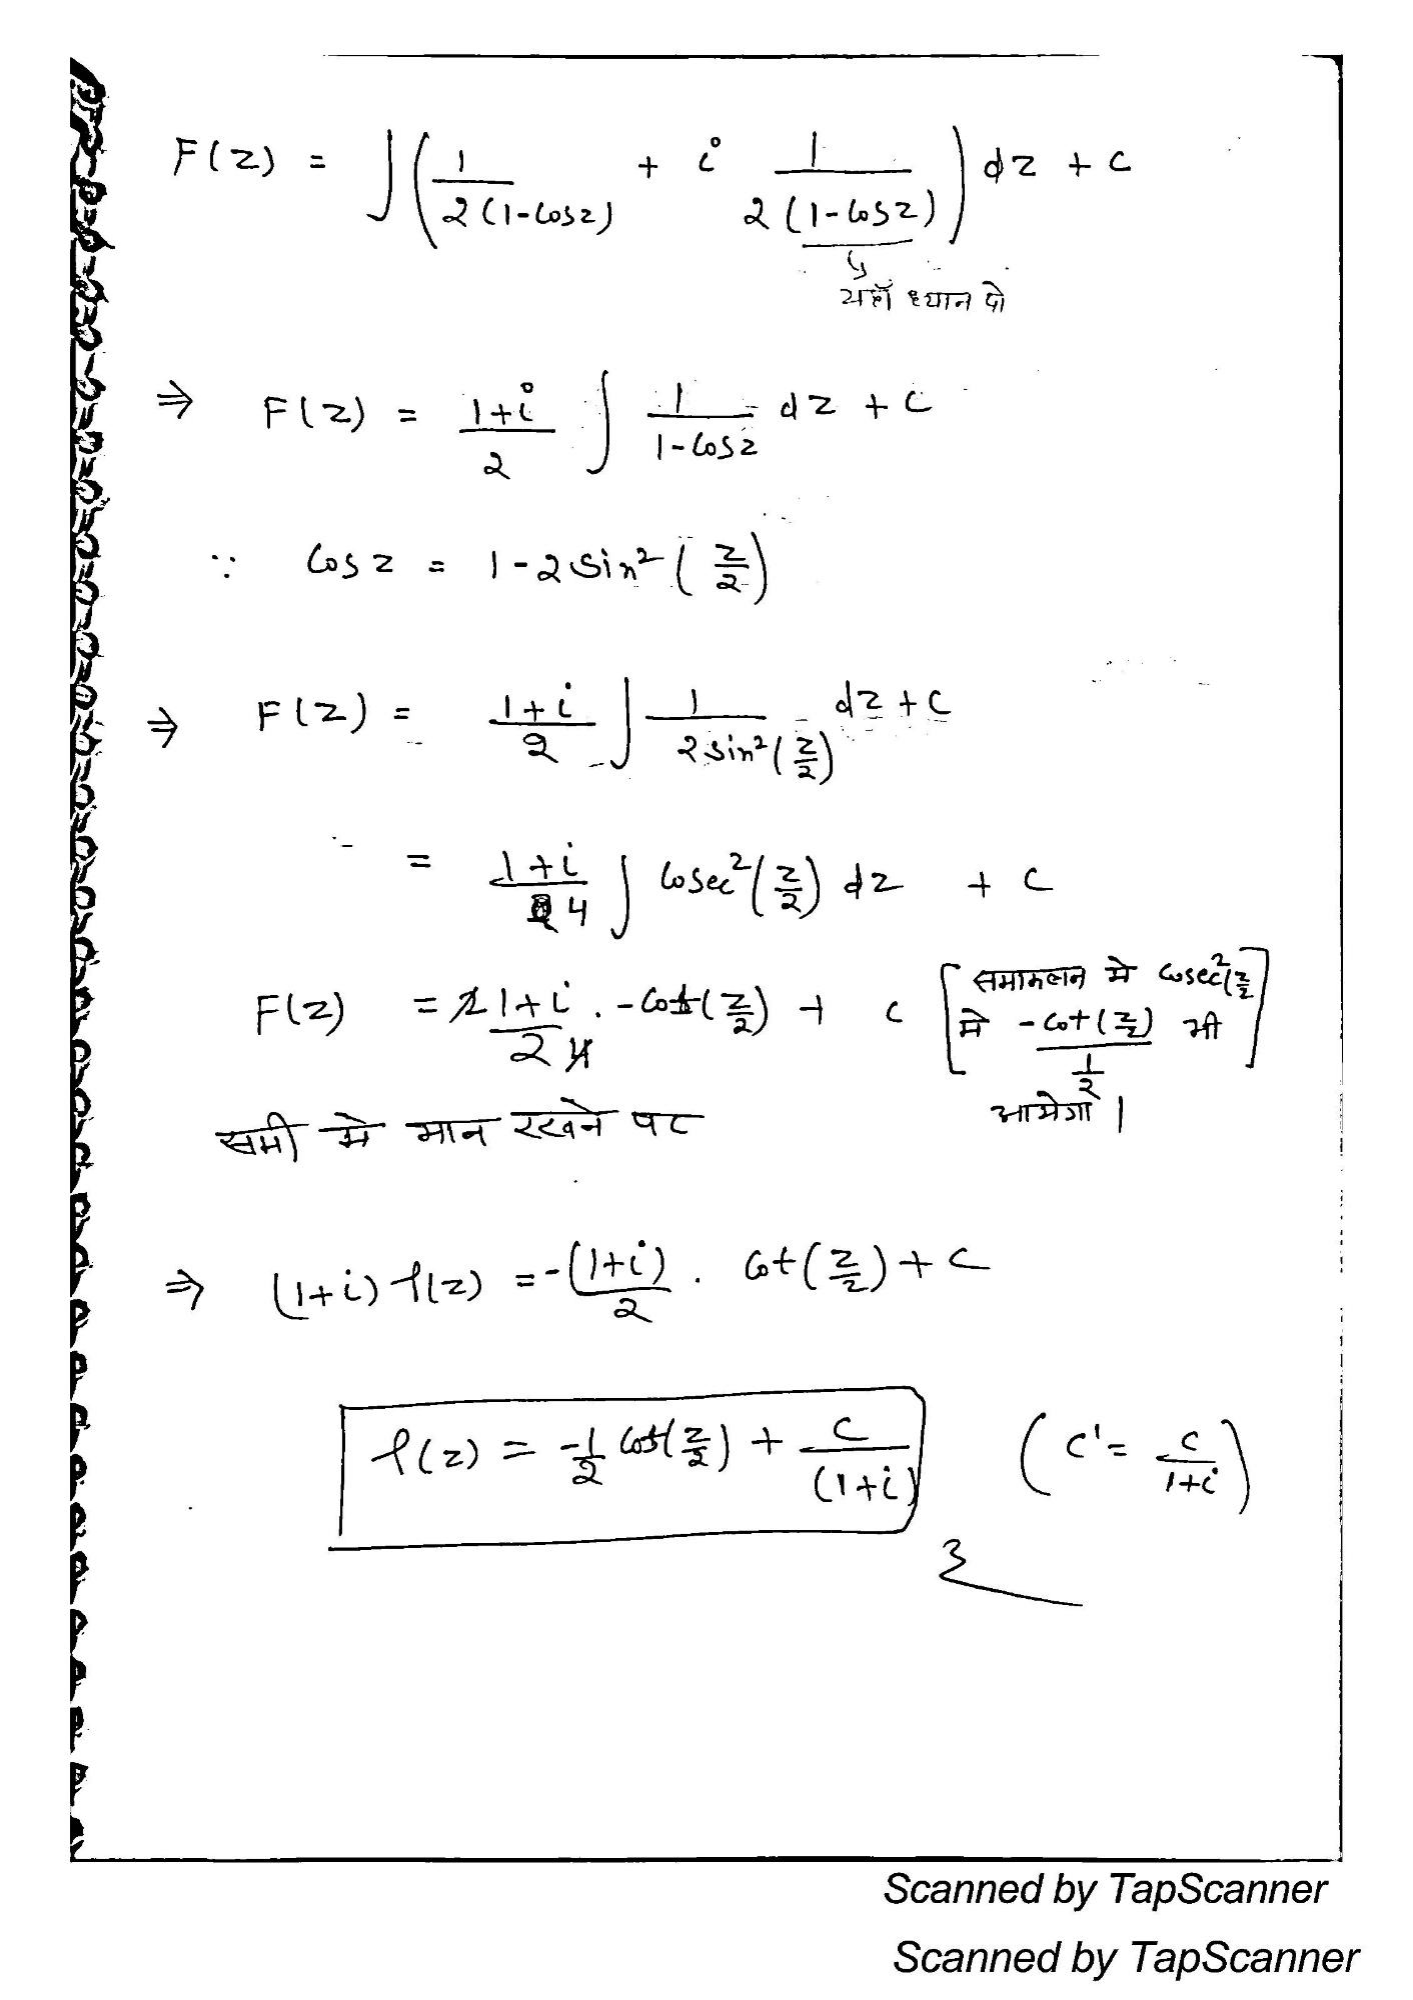 F(z) = ∫ ( 1/2(1-cosz) + i 1/2(1-cosz) ) dz + c
यहाँ ध्यान दो
⇒ F(z) = 1+i/2 ∫ 1/1-cosz dz + c
∵ cosz = 1-2sin²(z/2)
⇒ F(z) = 1+i/2 ∫ 1/2sin²(z/2) dz + c
= 1+i/4 ∫ cosec²(z/2) dz + c
F(z) = 1+i/2 . -cot(z/2) + c [समाकलन मे cosec²(z/2)
मे -cot(z/2)/(1/2) भी
आयेगा ।]
सभी मे मान रखने पर
⇒ (1+i) f(z) = -(1+i)/2 . cot(z/2) + c
f(z) = -1/2 cot(z/2) + c/(1+i) (c' = c/1+i)
Scanned by TapScanner
Scanned by TapScanner